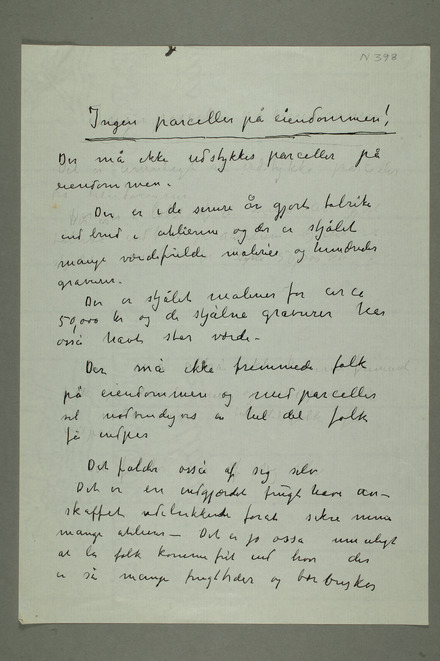 N 398
Ingen parceller på eiendommen!
Der må ikke udstykkes parceller på
eiendommen.
Der er i de senere år gjort talrike
indbrud i atelierne og der er stjålet
mange værdifulde malerier og hundreder
gravurer.
Der er stjålet malerier for circa
50,000 kr og de stjålne gravurer har
også havt stor værde.
Der må ikke fremmede folk
på eiendommen og med parceller
vil nødvendigvis en hel del folk
få indpas
Det falder også af sig selv
Det er en indgjærdet frugthave an-
skaffet udelukkende forat sikre mine
mange ateliers – Det er jo også umuligt
at la folk komme frit ind hvor der
er så mange frugttrær og bærbusker